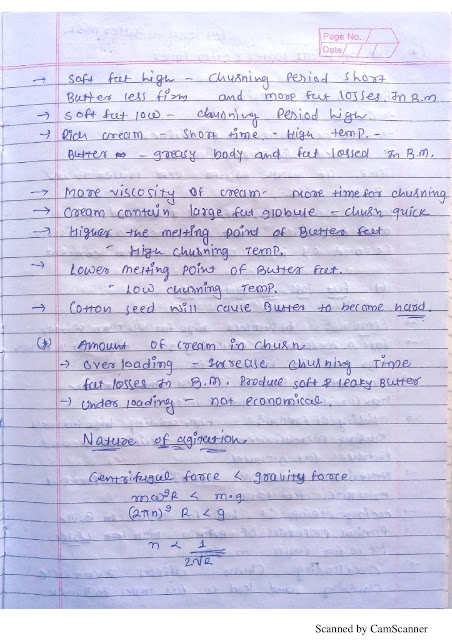 Page No.
Date
→ Soft fat high - churning Period short
Butter less firm and more fat losses in B.M
→ Soft fat low - churning Period high
→ Rich cream - Short time - High temp. -
Butter - greasy body and fat lossed in B.M.
→ More viscosity of cream - More time for churning
→ Cream contain large fat globule - churn quick
→ Higher the melting point of Butter fat
- High churning Temp.
→ Lower melting point of Butter fat.
- Low churning Temp.
→ Cotton seed will cause Butter to become hard.
(*) Amount of cream in churn
→ Overloading - Increase churning Time
fat losses in B.M. Produce soft & leaky Butter
→ Under loading - not economical.
Nature of agitation
Centrifugal force < gravity force
mω²R < m.g
(2πn)² R < g
n < 1
2√R
Scanned by CamScanner